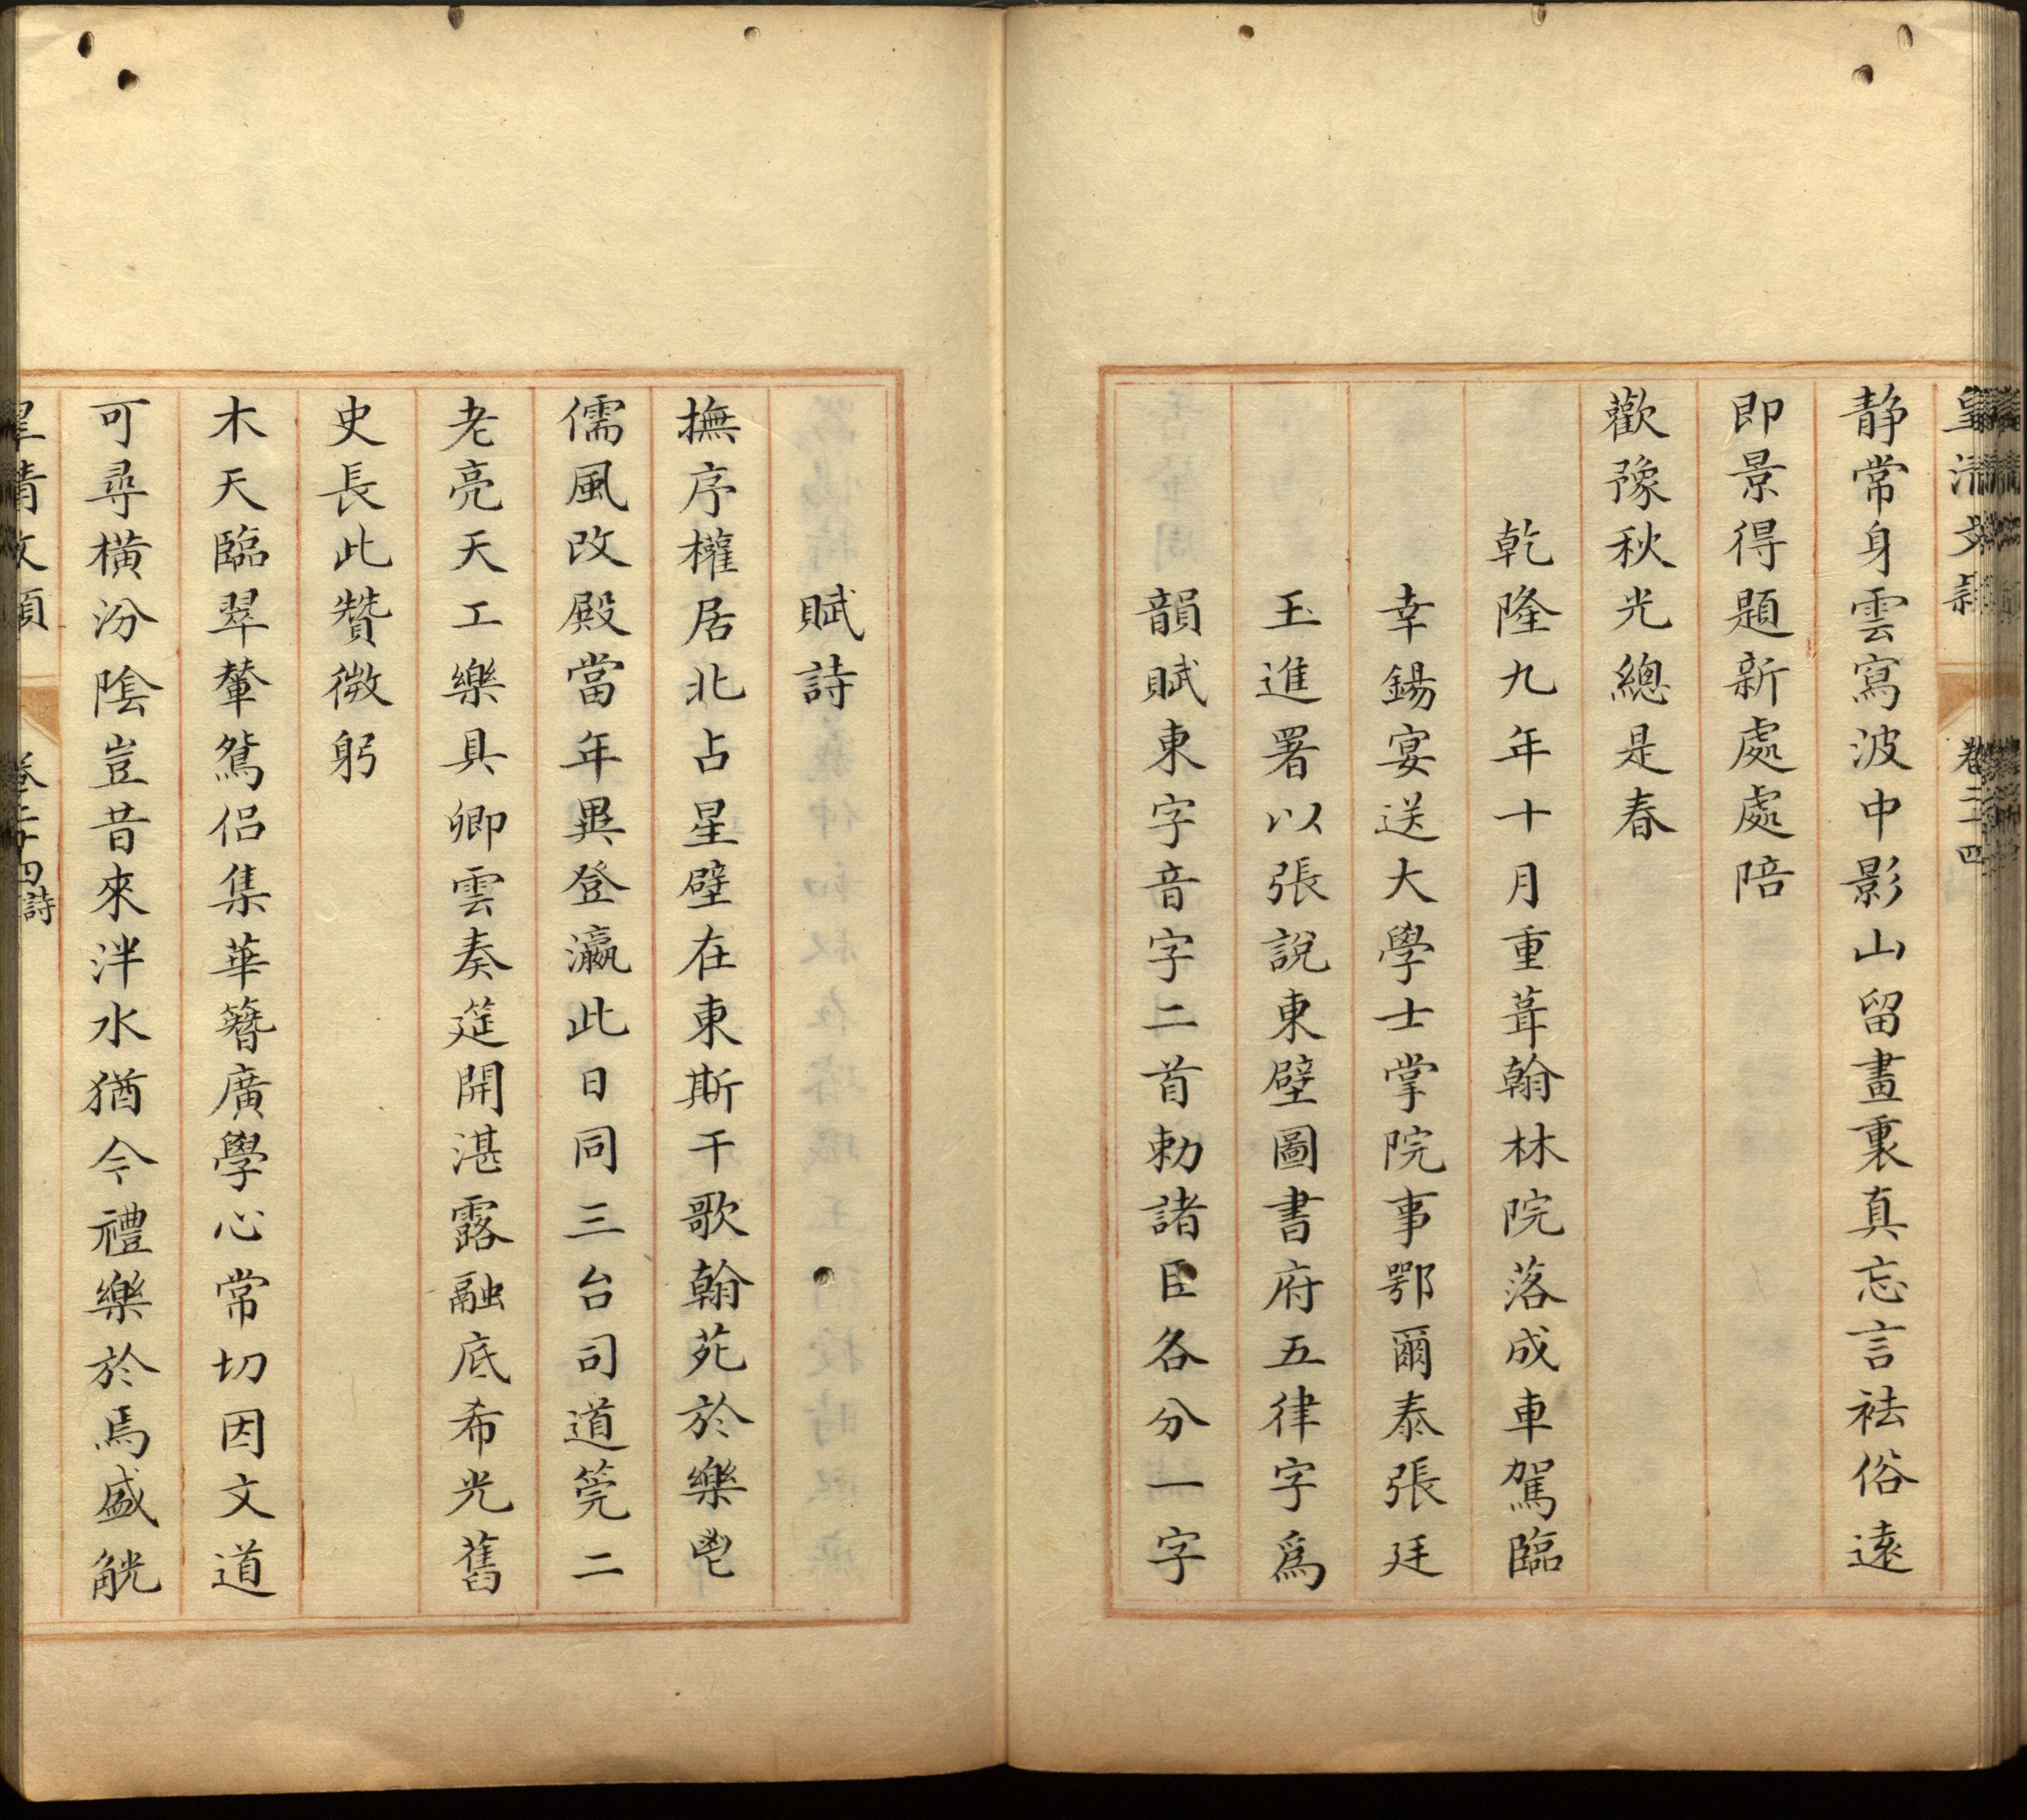 皇清文頴 卷二十四
静常身雲寫波中影山留畫裏真忘言袪俗遠
即景得題新處處陪
歡豫秋光總是春
乾隆九年十月重葺翰林院落成車駕臨
幸錫宴送大學士掌院事鄂爾泰張廷
玉進署以張說東壁圖書府五律字爲
韻賦東字音字二首勅諸臣各分一字
賦詩
撫序權居北占星壁在東斯干歌翰苑於樂鬯
儒風改殿當年異登瀛此日同三台司道筦二
老亮天工樂具卿雲奏筵開湛露融底希光舊
史長此贊微躬
木天臨翠輦鴛侣集華簪廣學心常切因文道
可尋橫汾陰豈昔來泮水猶今禮樂於焉盛觥
皇清文頴 卷二十四詩